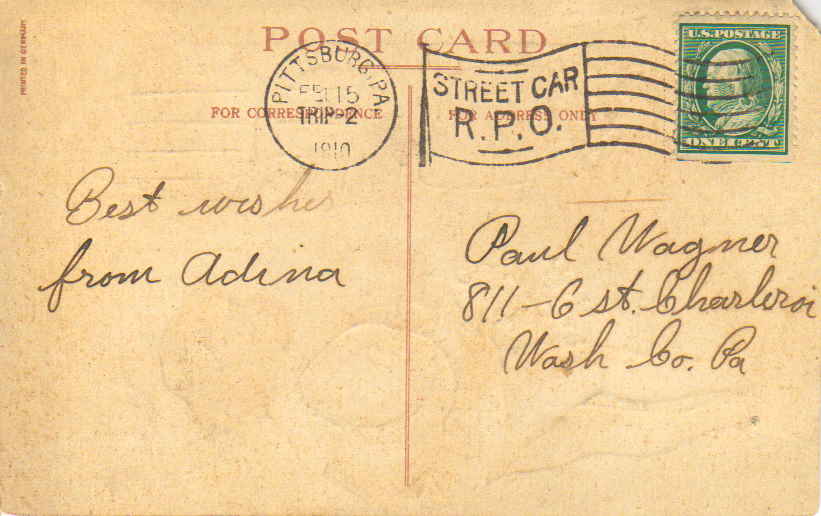 PRINTED IN GERMANY
POST CARD
PITTSBURG, PA
FEB 15
TRIP-2
1910
STREET CAR
R.P.O.
U.S. POSTAGE
ONE CENT
FOR CORRESPONDENCE
FOR ADDRESS ONLY
Best wishes
from Adina
Paul Wagner
811-6 st. Charleroi
Wash Co. Pa